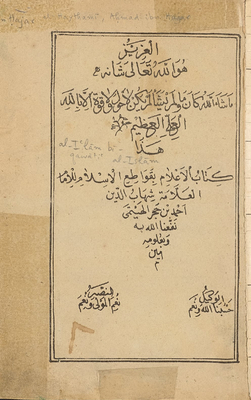 Hajar
Haythami, Ahmad ibn Hajar
العزيز
هو الله تعالى شانه
ما شاء الله كان وما لم يشا لم يكن لا حول ولا قوة الا بالله
العلي العظيم
هذا
al-I'lām bi-
qawāti'
al-Islām
كتاب الاعلام بقواطع الاسلام للامام
العلامة شهاب الدين
احمد بن حجر الهيتمي
نفعنا الله به
وبعلومه
مين
م
وبه توكلي
حسبنا الله ونعم
نعم المولى ونعم